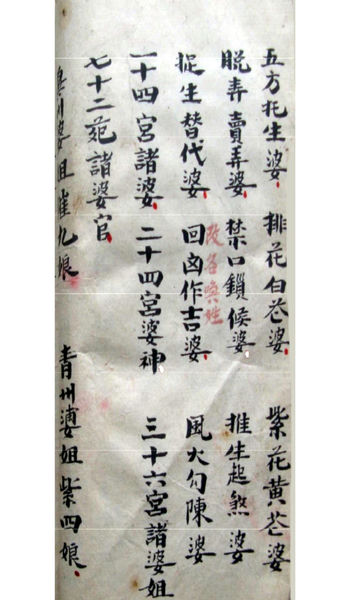 五方托生婆 排花白花婆 紫花黄花婆
脱弄賣弄婆 禁口鎖候婆 推生起煞婆
改名喚姓
捉生替代婆 回凶作吉婆 風火勾陳婆
一十四宮諸婆 二十四宮婆神 三十六宮諸婆姐
七十二苑諸婆官
州婆姐崔九娘 青州婆姐紫四娘